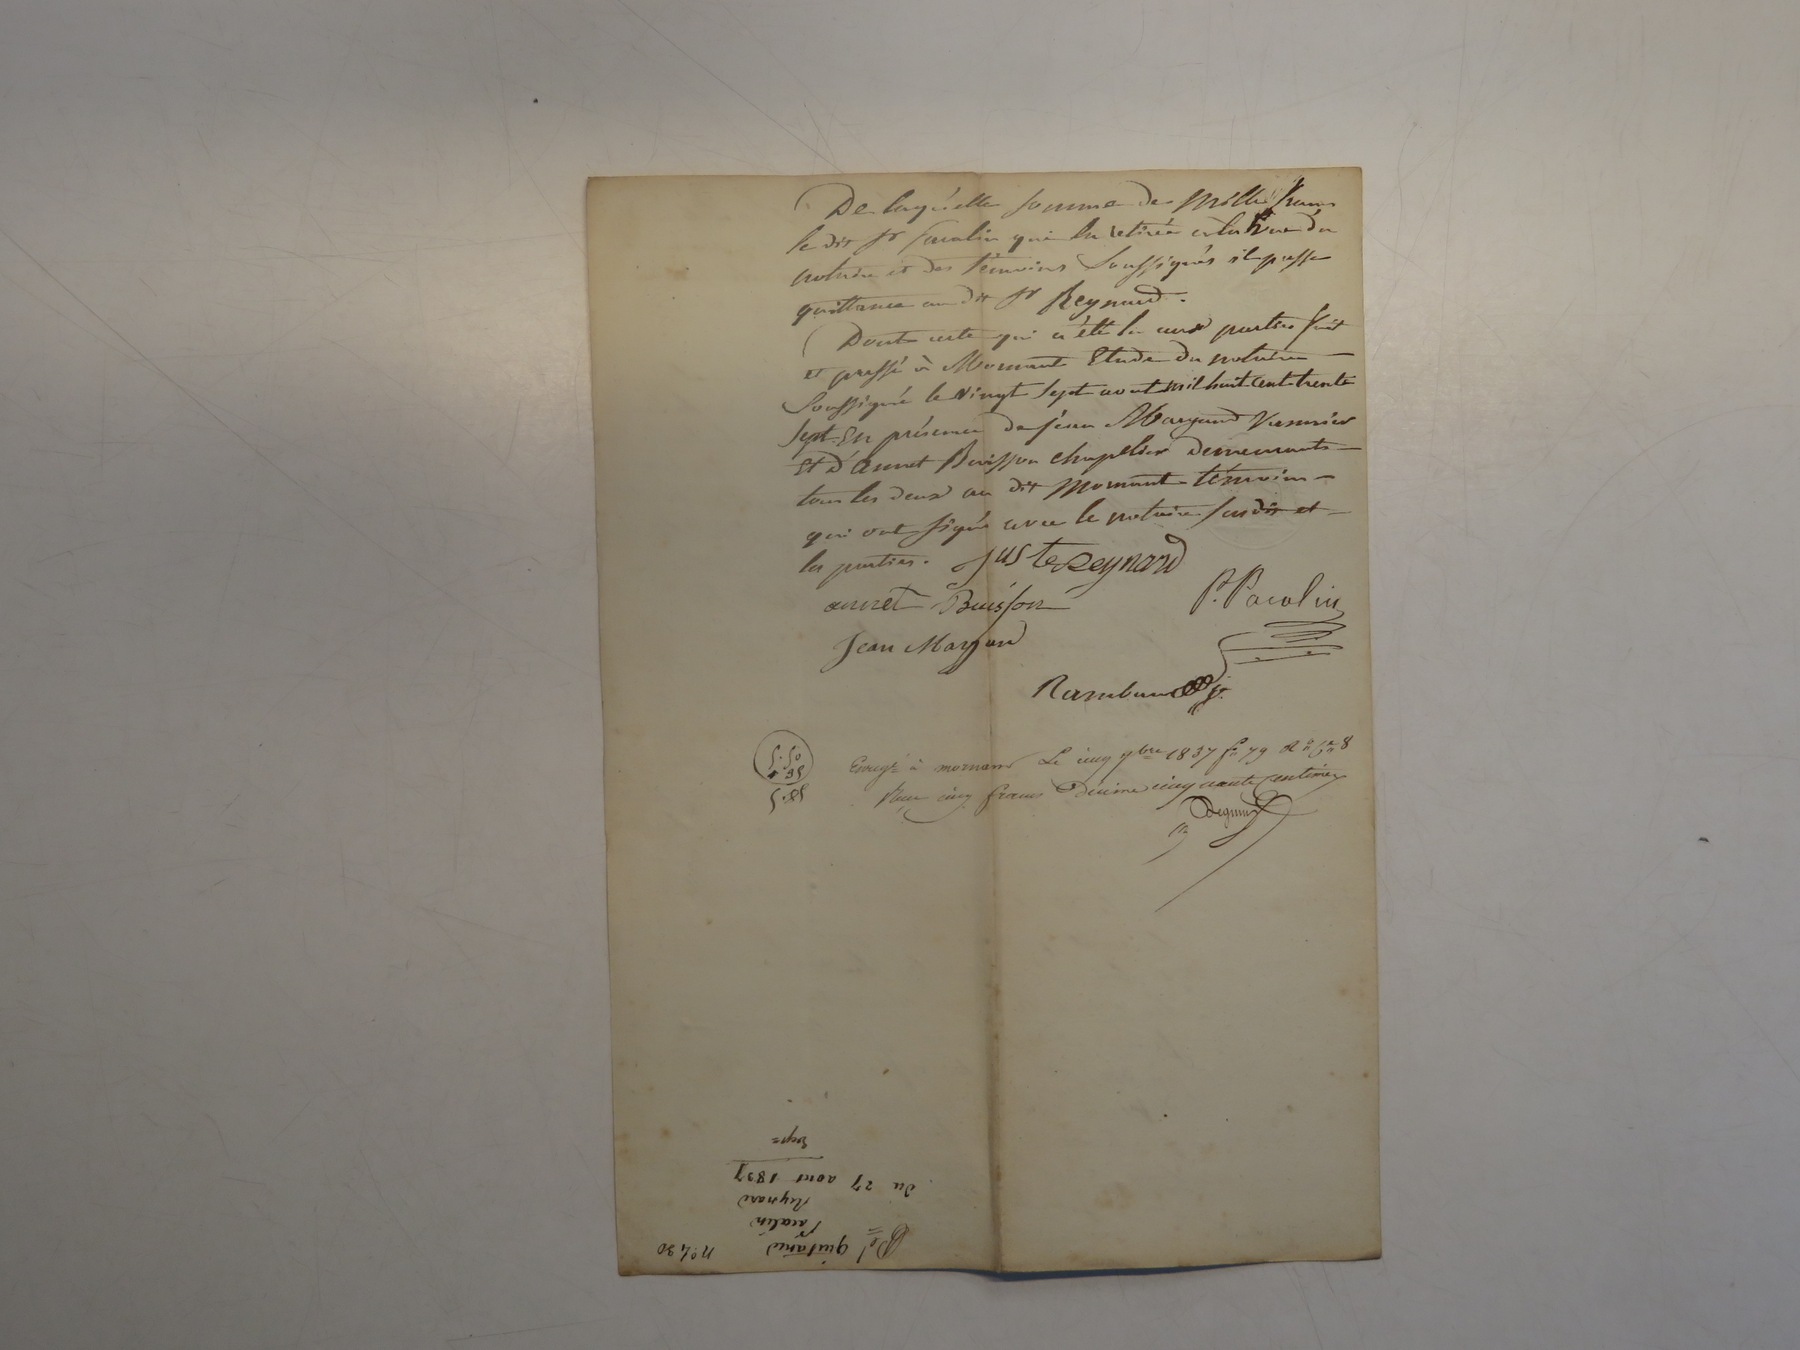 De laquelle somme de Mille francs
le dit Sr Pacalin qui l'a retirée à la vue du
notaire et des témoins soussignés il passe
quittance au dit Sr Reynard.
Dont acte qui a été lu aux parties fait
et passé à Mornant Etude du notaire
soussigné le vingt sept aout mil huit cent trente
sept En présence de jean Margand Vannier
Et d'annet Buisson chapelier demeurants
tous les deux au dit Mornant témoins
qui ont signé avec le notaire susdit et
les parties. juste Reynard
annet Buisson
P. Pacalin
Jean Margand
Rambaud
5.50
55
Enregé à mornant Le cinq 7bre 1837 fo 79 Ro Ce 8
Reçu cinq francs Décime cinquante centimes
n° 430
quitance
Pacalin
Reynard
du 27 aout 1837